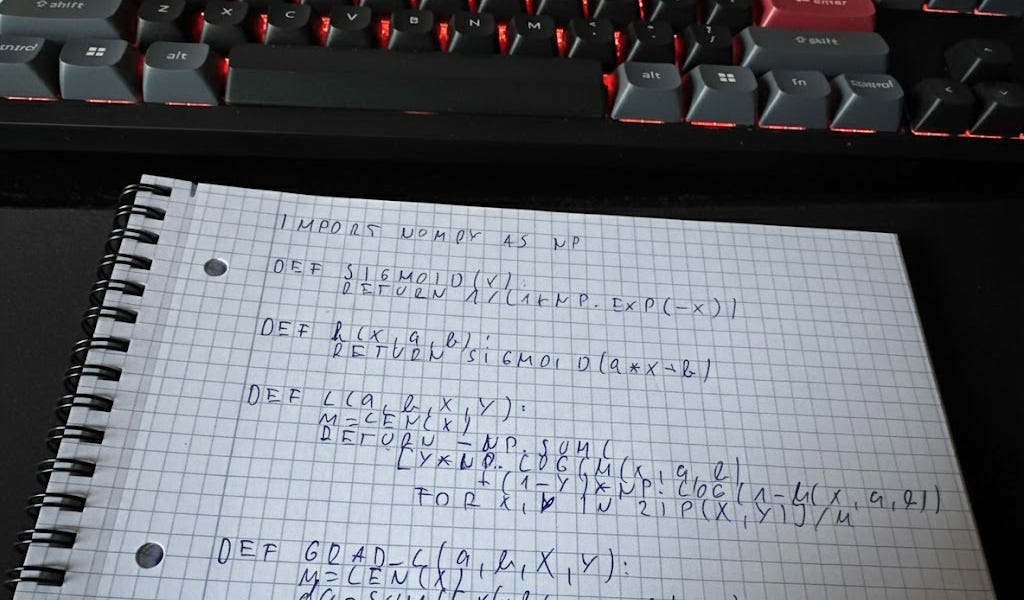 shift Z X C V B N M enter
control alt alt fn control
shift
IMPORT NUMPY AS NP
DEF SIGMOID(X):
RETURN 1/(1+NP.EXP(-X))
DEF h(X, a, b):
RETURN SIGMOID(a*X+b)
DEF L(a, b, X, Y):
M=LEN(X)
RETURN -NP.SUM(
[Y*NP.LOG(h(X, a, b)
+(1-Y)*NP.LOG(1-h(X, a, b))
FOR X, Y IN ZIP(X, Y)])/M
DEF GRAD_L(a, b, X, Y):
M=LEN(X)